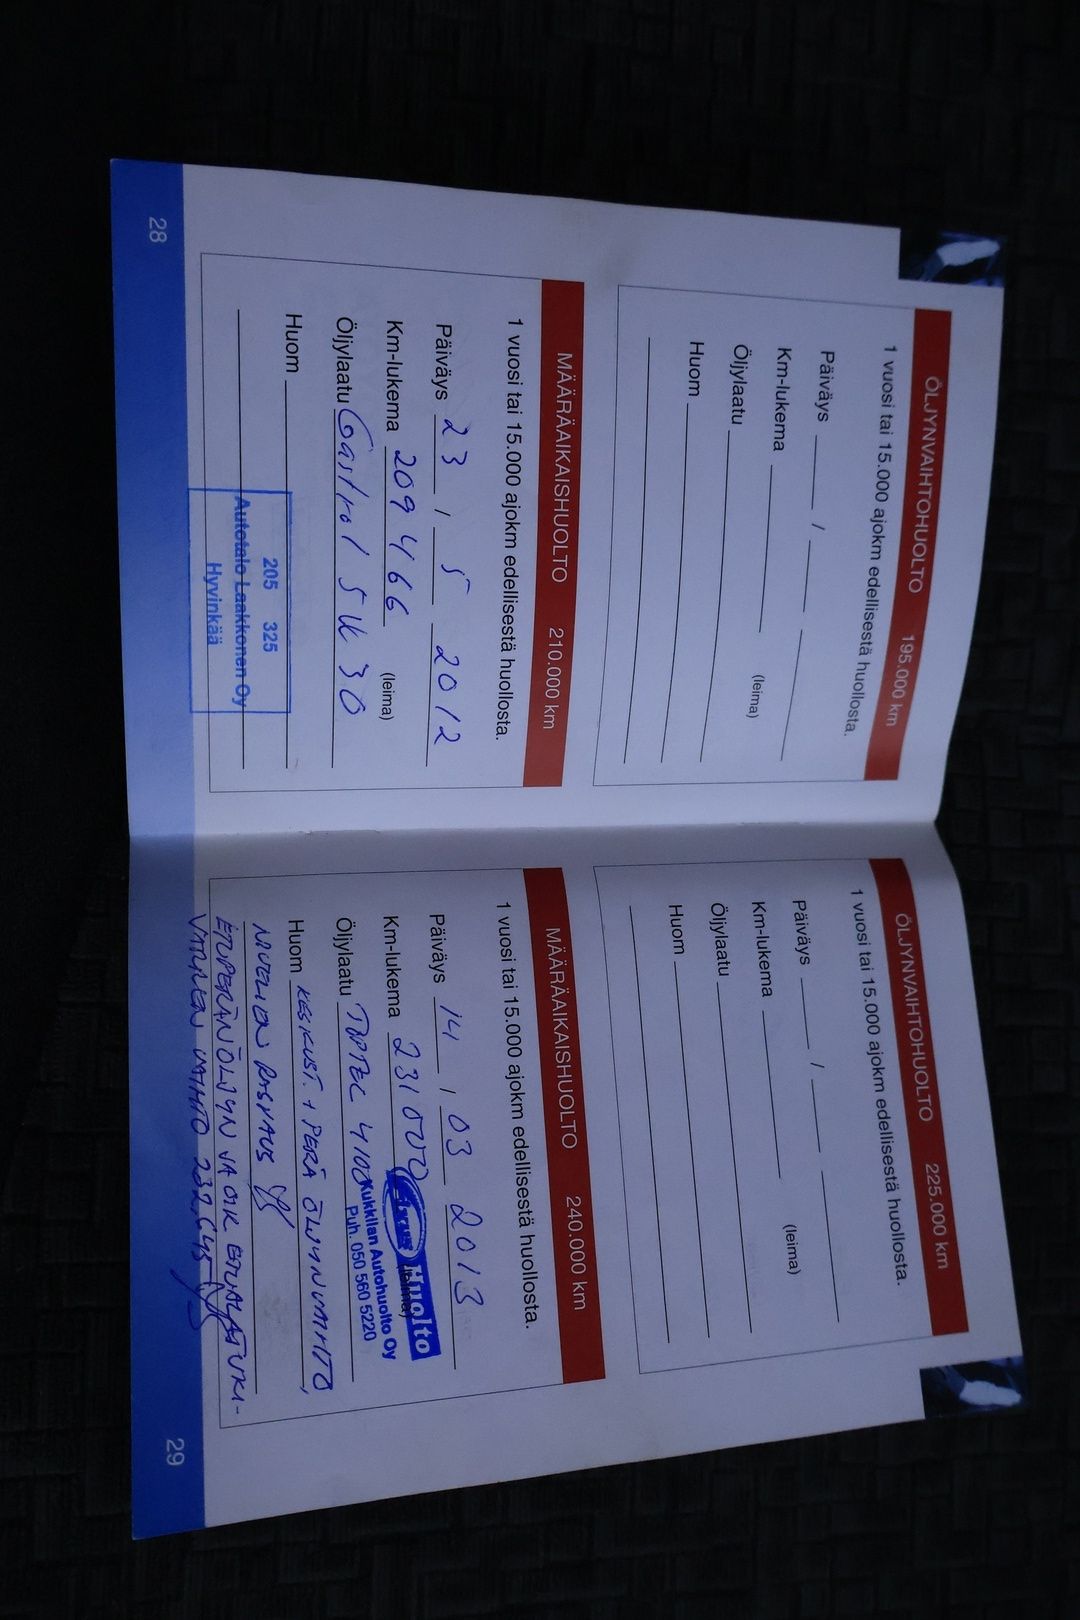 ÖLJYNVAIHTOHUOLTO 195.000 km
1 vuosi tai 15.000 ajokm edellisestä huollosta.
Päiväys / 
Km-lukema
(leima)
Öljylaatu
Huom
MÄÄRÄAIKAISHUOLTO 210.000 km
1 vuosi tai 15.000 ajokm edellisestä huollosta.
Päiväys 23 / 5 2012
Km-lukema 209 466 (leima)
Öljylaatu Castrol 5W30
Huom
205 325
Autotalo Laakkonen Oy
Hyvinkää
28
ÖLJYNVAIHTOHUOLTO 225.000 km
1 vuosi tai 15.000 ajokm edellisestä huollosta.
Päiväys /
Km-lukema
(leima)
Öljylaatu
Huom
MÄÄRÄAIKAISHUOLTO 240.000 km
1 vuosi tai 15.000 ajokm edellisestä huollosta.
Päiväys 14 / 03 2013
Km-lukema 231000 (leima)
Huolto
Kukkilan Autohuolto Oy
Puh. 050 560 5220
Öljylaatu TOPTEC 4100
Huom KESKUST. + PERÄ ÖLJYNVAIHTO,
NIVELIEN RASVAUS
ETUPERÄNÖLJYN JA OIK ETUALATUKI-
VARREN VAIHTO 232.645
29